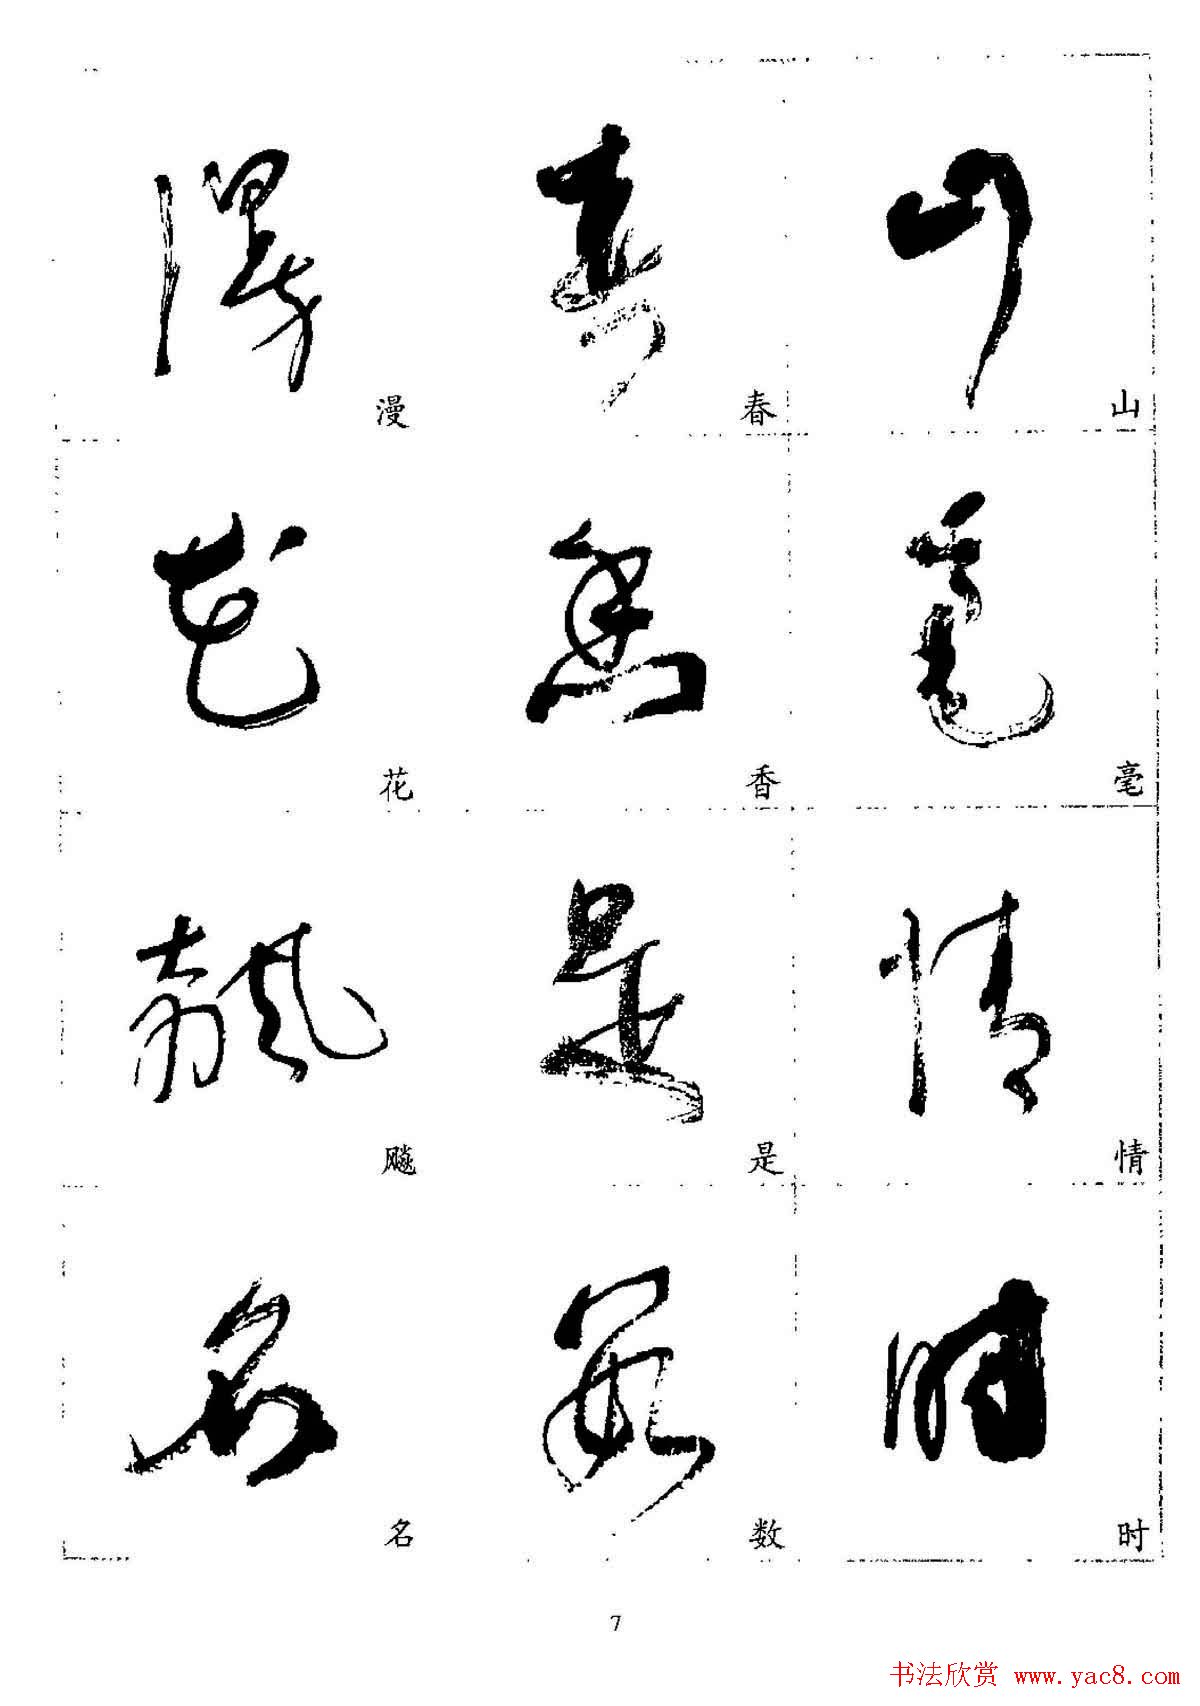 漫 春 山
花 香 毫
飚 是 情
名 数 时
7
书法欣赏 www.yac8.com